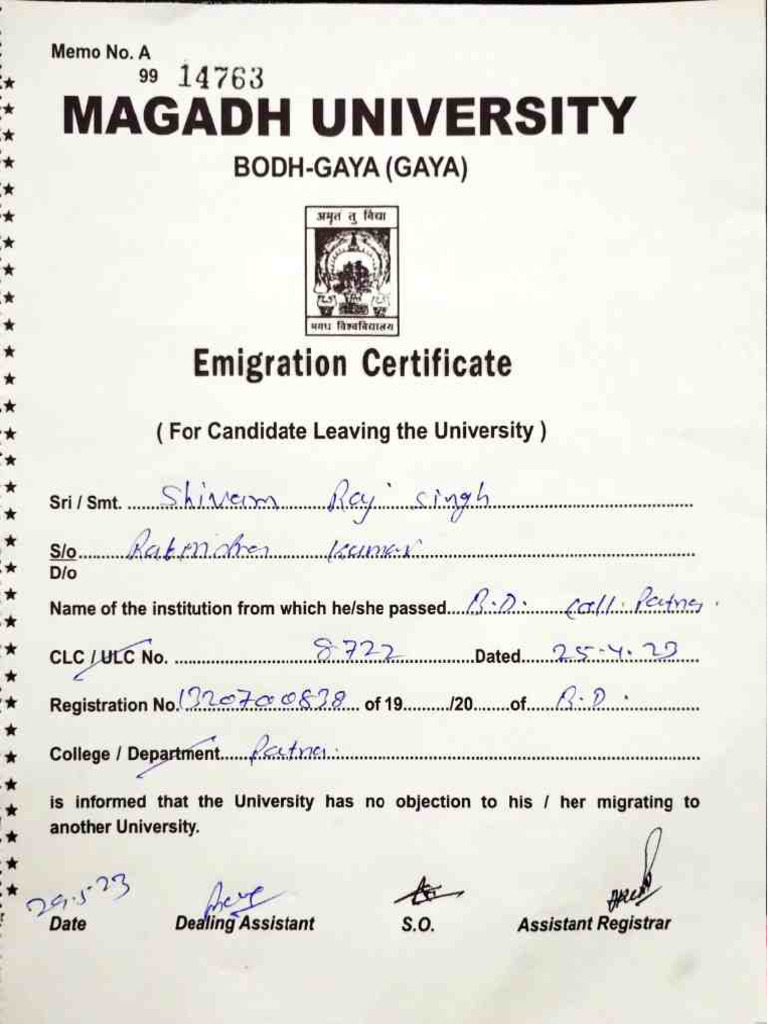 Memo No. A
99 14763
MAGADH UNIVERSITY
BODH-GAYA (GAYA)
अमृत तु विद्या
मगध विश्वविद्यालय
Emigration Certificate
( For Candidate Leaving the University )
Sri / Smt. Shivam Raj Singh
S/o Kumar
D/o
Name of the institution from which he/she passed B.D. Coll. Patna.
CLC / ULC No. 8722 Dated 25.4.23
Registration No. 1320700838 of 19........./20.......of B.D.
College / Department Patna.
is informed that the University has no objection to his / her migrating to
another University.
29.5.23
Date Dealing Assistant S.O. Assistant Registrar